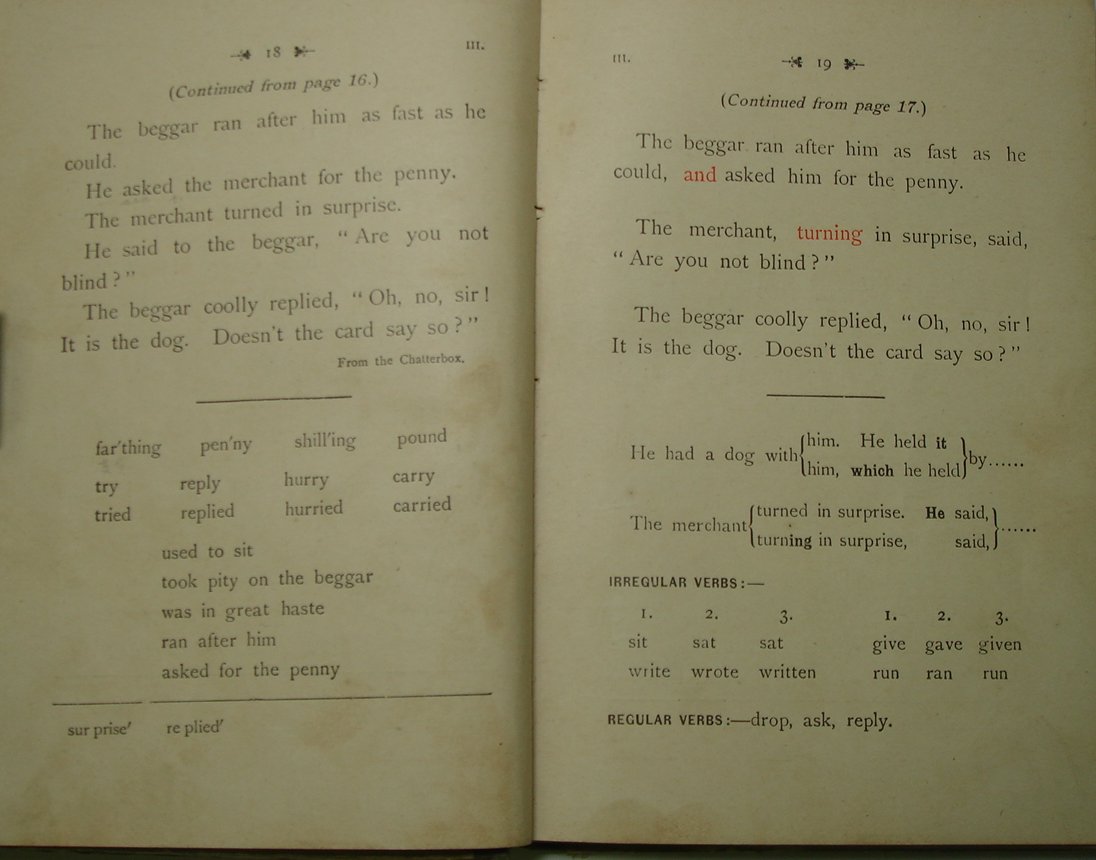 18 III.
(Continued from page 16.)
The beggar ran after him as fast as he
could.
He asked the merchant for the penny.
The merchant turned in surprise.
He said to the beggar, “Are you not
blind?”
The beggar coolly replied, “Oh, no, sir!
It is the dog. Doesn't the card say so?”
From the Chatterbox.
far′thing pen′ny shill′ing pound
try reply hurry carry
tried replied hurried carried
used to sit
took pity on the beggar
was in great haste
ran after him
asked for the penny
sur prise′ re plied′
III. 19
(Continued from page 17.)
The beggar ran after him as fast as he
could, and asked him for the penny.
The merchant, turning in surprise, said,
“Are you not blind?”
The beggar coolly replied, “Oh, no, sir!
It is the dog. Doesn't the card say so?”
He had a dog with {him. He held it
him, which he held} by......
The merchant {turned in surprise. He said,
turning in surprise, said,} ......
IRREGULAR VERBS:—
1. 2. 3. 1. 2. 3.
sit sat sat give gave given
write wrote written run ran run
REGULAR VERBS:—drop, ask, reply.